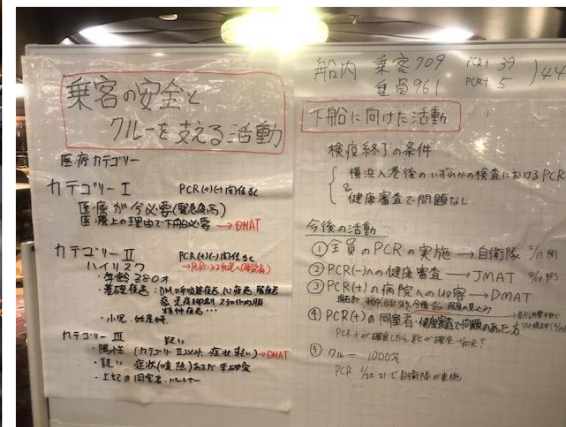 乗客の安全と
クルーを支える活動
医療カテゴリー
カテゴリー I PCR(+)(-)関係なく
医療が今必要(緊急疾病)
医療上の理由で下船必要 → DMAT
カテゴリー II PCR(+)(-)関係なく
ハイリスク
・年齢
・基礎疾患:DM
・小児 妊産婦
カテゴリー III 疑い
・陽性 (カテゴリーII以外, 症状軽い) → DMAT
・疑い 症状(咳 熱)あるが
・上記の同室者 パートナー
船内 乗客 709 PCR+ 39
乗員 961 PCR+ 5 )44
下船に向けた活動
検疫終了の条件
横浜入港後のいずれかの検査におけるPCR
&
健康審査で問題なし
今後の活動
①全員のPCRの実施 → 自衛隊
②PCR(-)への健康審査 → JMAT
③PCR(+)の病院への収容 → DMAT
④PCR(+)の同室者・健康審査で問題のあった方
⑤クルー 1000名
PCR で自衛隊が実施